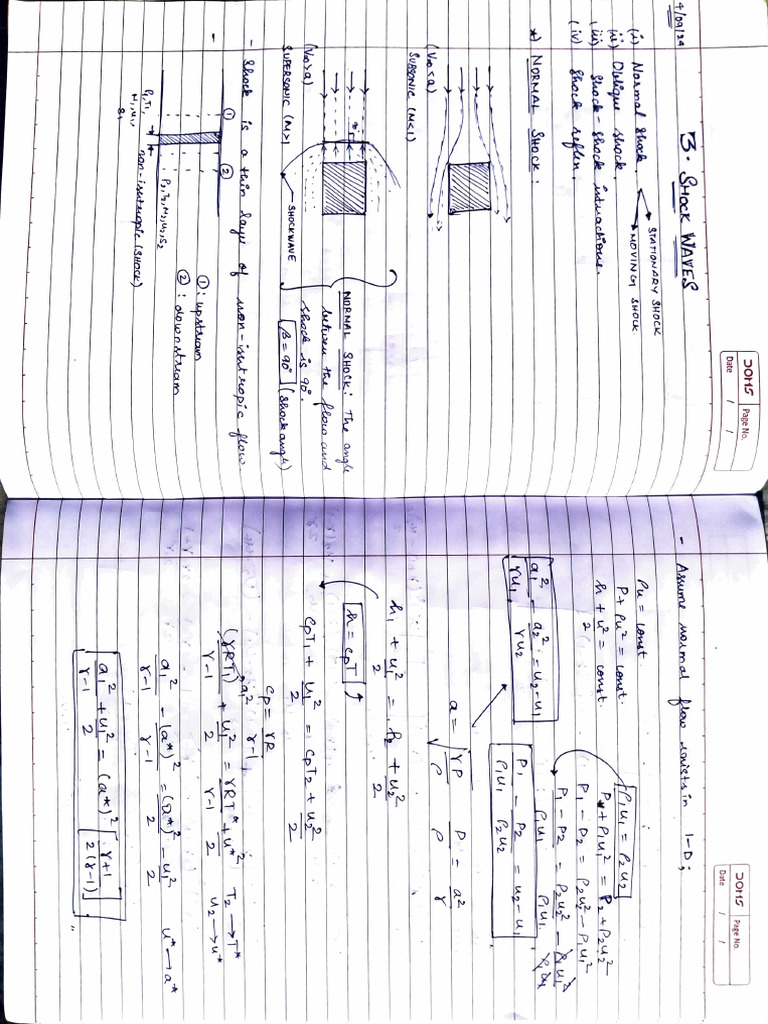 4/09/24
DOMS
Page No.
Date / /
3. SHOCK WAVES
(i) Normal shock.
STATIONARY SHOCK
MOVING SHOCK
(ii) Oblique shock.
(iii) Shock-shock interactions.
(iv) Shock reflen.
*) NORMAL SHOCK:
(V∞<a)
SUBSONIC (M<1)
(V∞>a)
SHOCKWAVE
SUPERSONIC (M>1)
NORMAL SHOCK: The angle
between the flow and
shock is 90°.
β = 90° (shock angle)
- Shock is a thin layer of non-isentropic flow
① ②
①: upstream
②: downstream
P₁,T₁,
M₁,u₁,
s₁
P₂,T₂,M₂,u₂,s₂
non-isentropic (SHOCK)
DOMS
Page No.
Date / /
- Assume normal flow consists in 1-D;
ρu = const
ρ₁u₁ = ρ₂u₂
P + ρu² = const.
P₁ + ρ₁u₁² = P₂ + ρ₂u₂²
h + u²/2 = const.
P₁ - P₂ = ρ₂u₂² - ρ₁u₁²
P₁ - P₂/ρ₁u₁ = ρ₂u₂²/ρ₁u₁ - ρ₁u₁²/ρ₁u₁
a₁²/γu₁ - a₂²/γu₂ = u₂-u₁
P₁/ρ₁u₁ - P₂/ρ₂u₂ = u₂-u₁
a = √γP/ρ P/ρ = a²/γ
h₁ + u₁²/2 = h₂ + u₂²/2
h = cpT
cpT₁ + u₁²/2 = cpT₂ + u₂²/2
cp = γR/γ-1
(γRT₁)/γ-1 + u₁²/2 = γRT*/γ-1 + u*²/2
a₁²
T₂ → T*
u₂ → u*
a₁²/γ-1 - (a*)²/γ-1 = (a*)²/2 - u₁²/2 u* → a*
a₁²/γ-1 + u₁²/2 = (a*)² [γ+1/2(γ-1)]